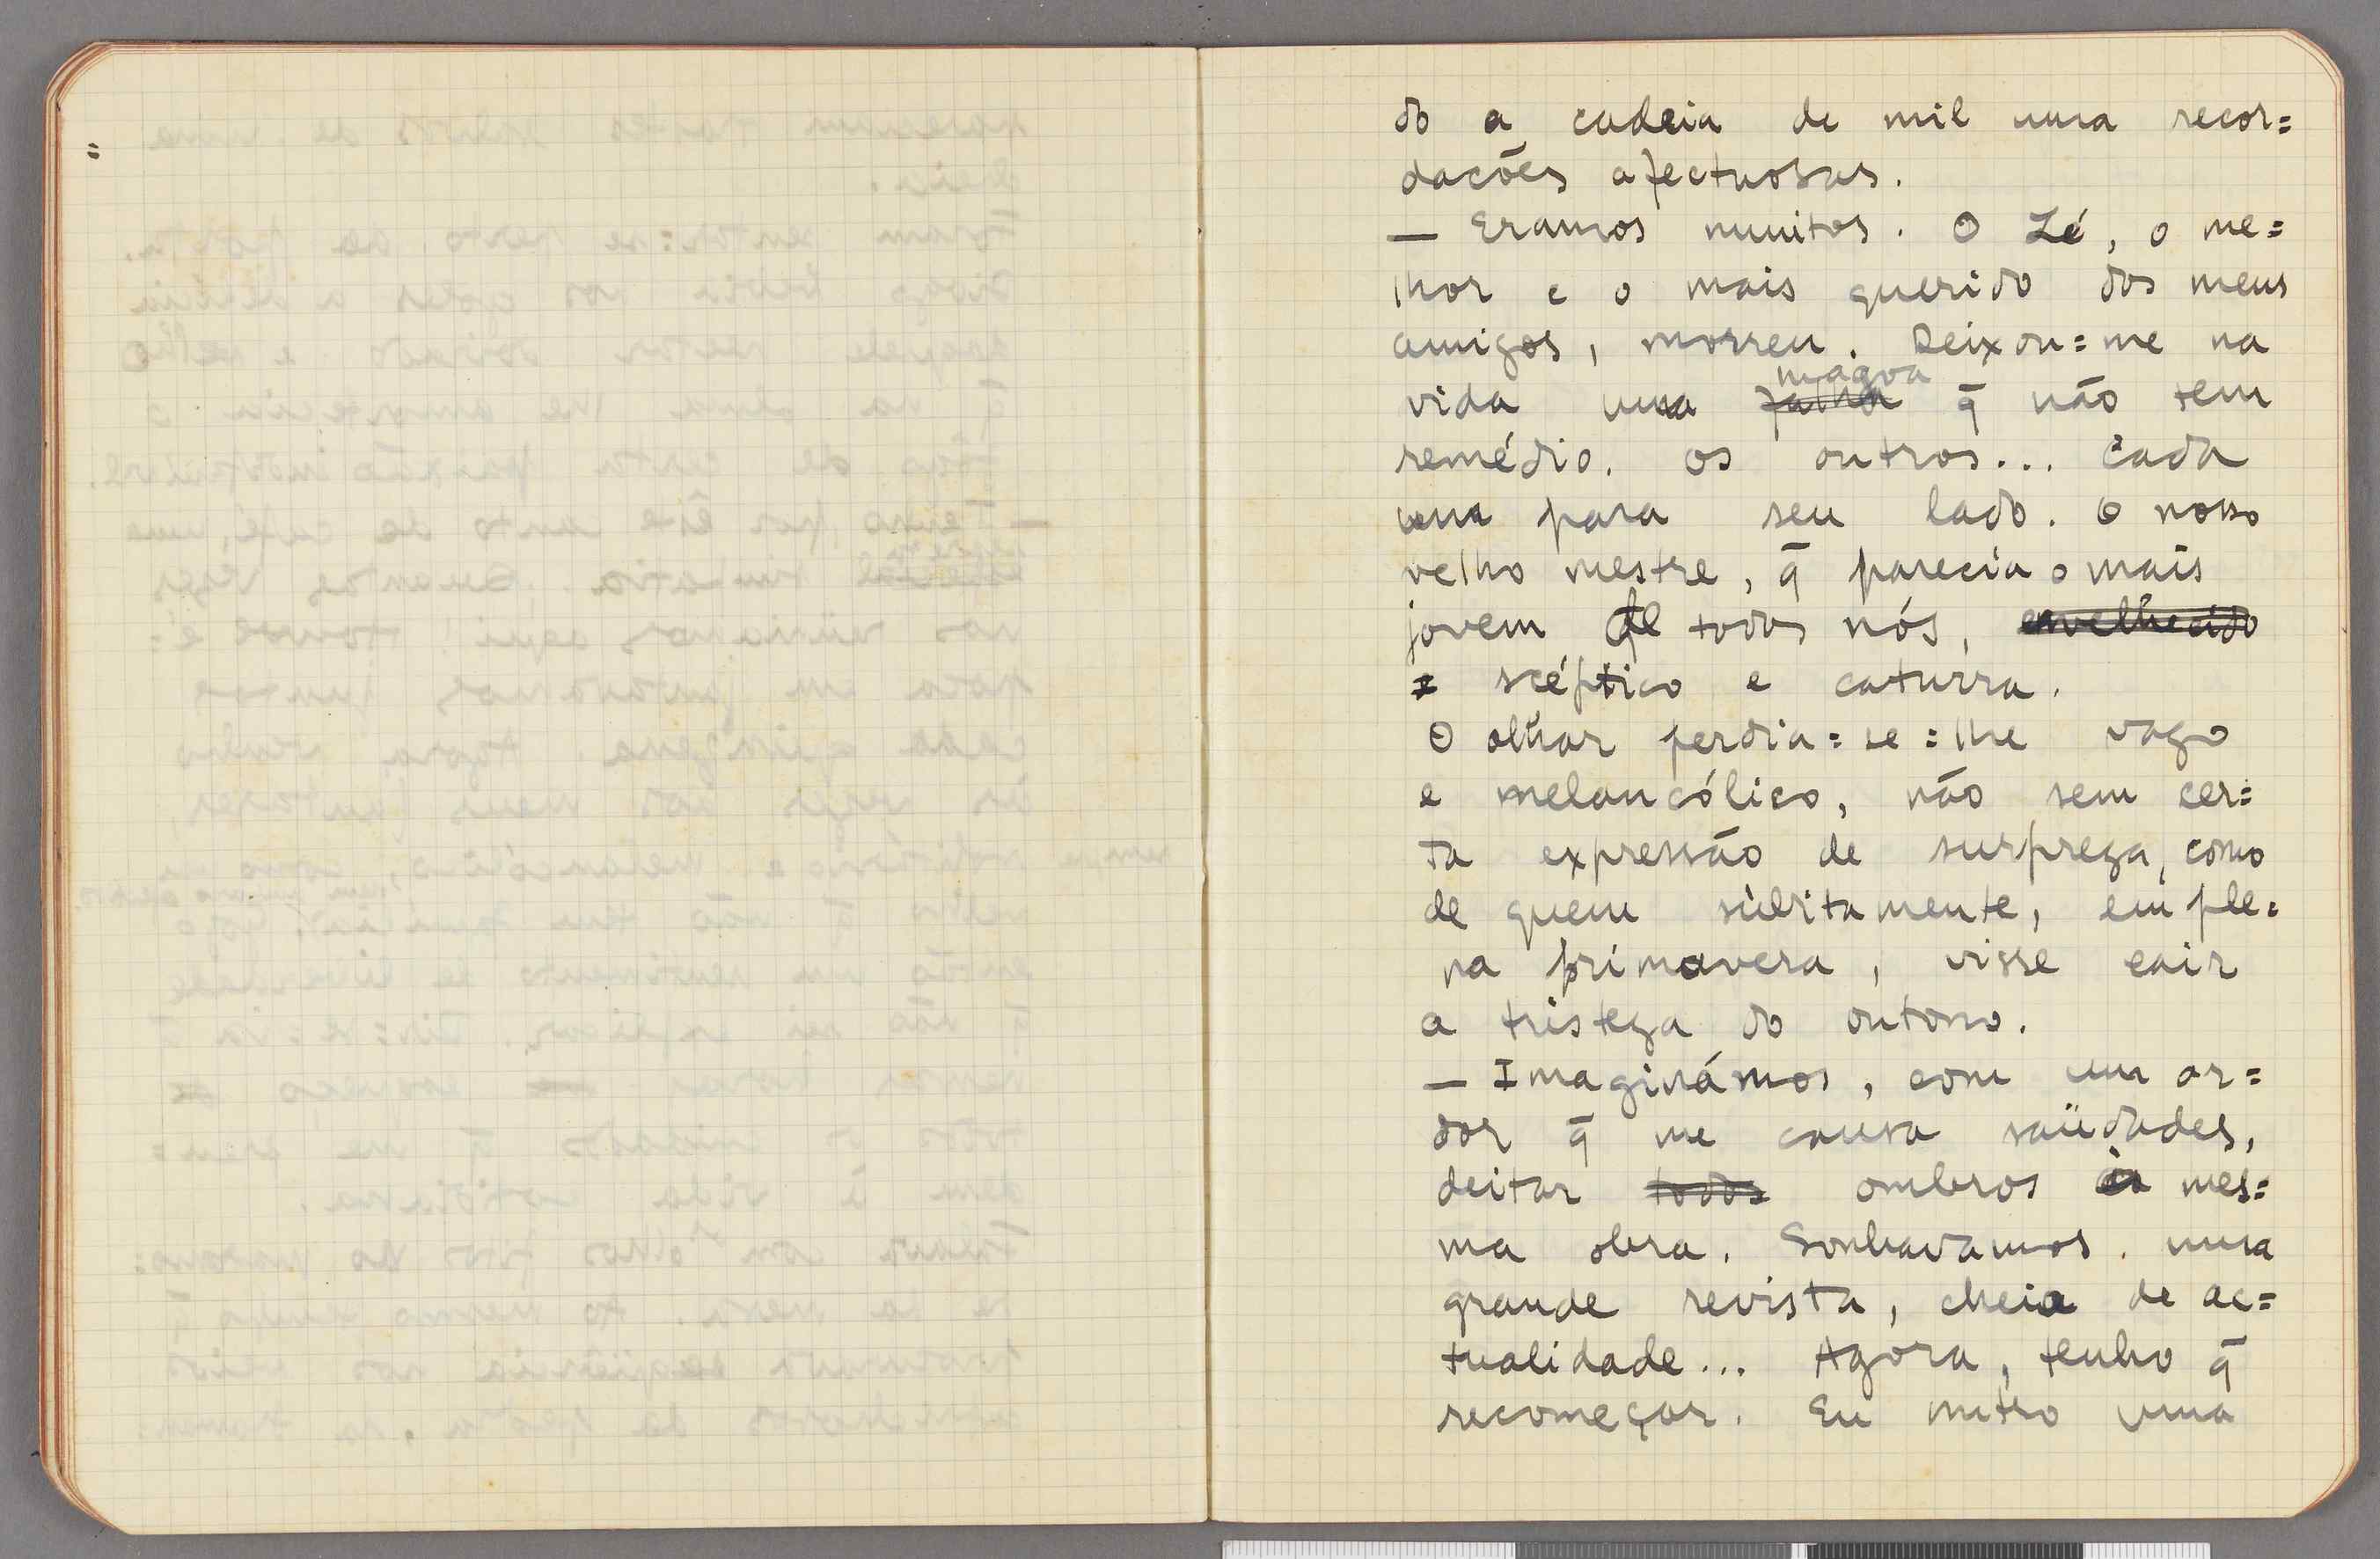 do a cadeia de mil uma recor=
dacões afectuosas.
— Eramos muitos. O Zé, o me=
lhor e o mais querido dos meus
amigos, morreu. Deixou=me na
magoa
vida uma falha q̄ não tem
remédio. Os outros... Cada
um para seu lado. O nosso
velho mestre, q̄ parecia o mais
jovem de todos nós, envelhecido
scéptico e caturra.
O olhar perdia=se=lhe vago
e melancólico, não sem cer=
ta expressão de surpreza, como
de quem sùbitamente, em ple=
na primavera, visse cair
a tristeza do outono.
— Imaginámos, com um ar=
dor q̄ me causa saüdades,
deitar todos ombros à mes=
ma obra. Sonhavamos uma
grande revista, cheia de ac=
tualidade... Agora, tenho q̄
recomeçar. Eu nutro uma